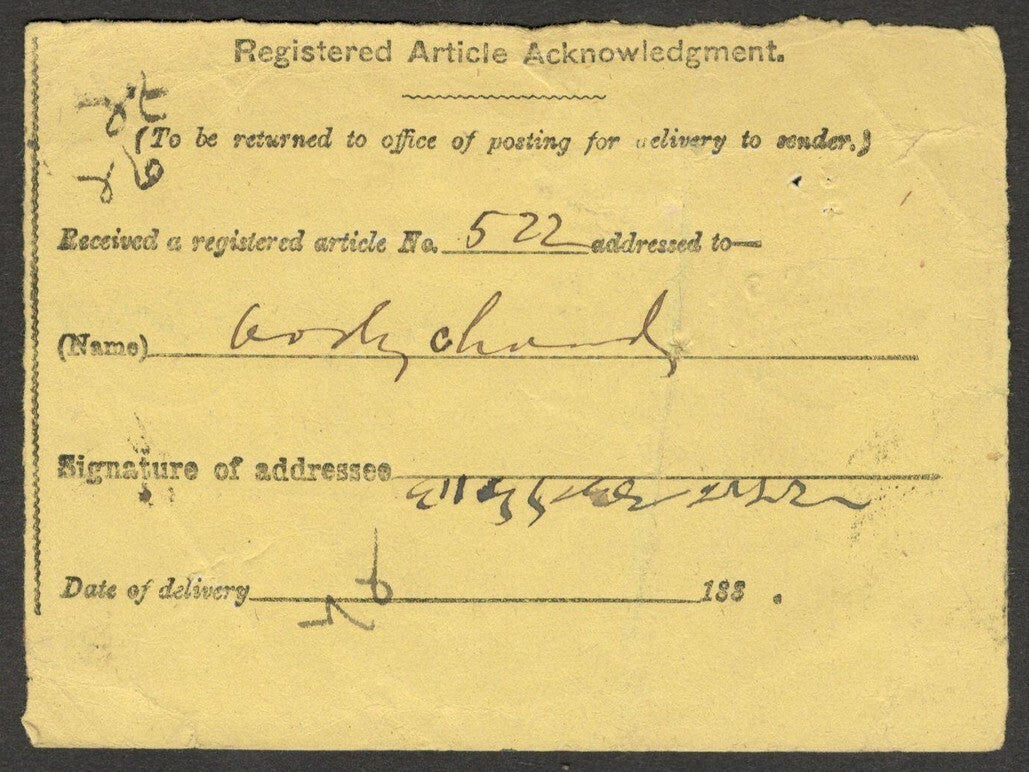 Registered Article Acknowledgment.
(To be returned to office of posting for delivery to sender.)
Received a registered article No. 522 addressed to—
(Name) chand
Signature of addressee
Date of delivery 188 .